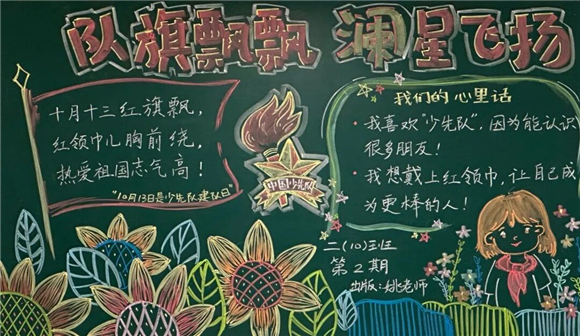 队旗飘飘 澜星飞扬
十月十三红旗飘，
红领巾儿胸前绕，
热爱祖国志气高！
"10月13日是少先队建队日"
中国少先队
我们的心里话
·我喜欢"少先队"，因为能认识
很多朋友！
·我想戴上红领巾，让自己成
为更棒的人！
二（10）班
第2期
出版：姚老师